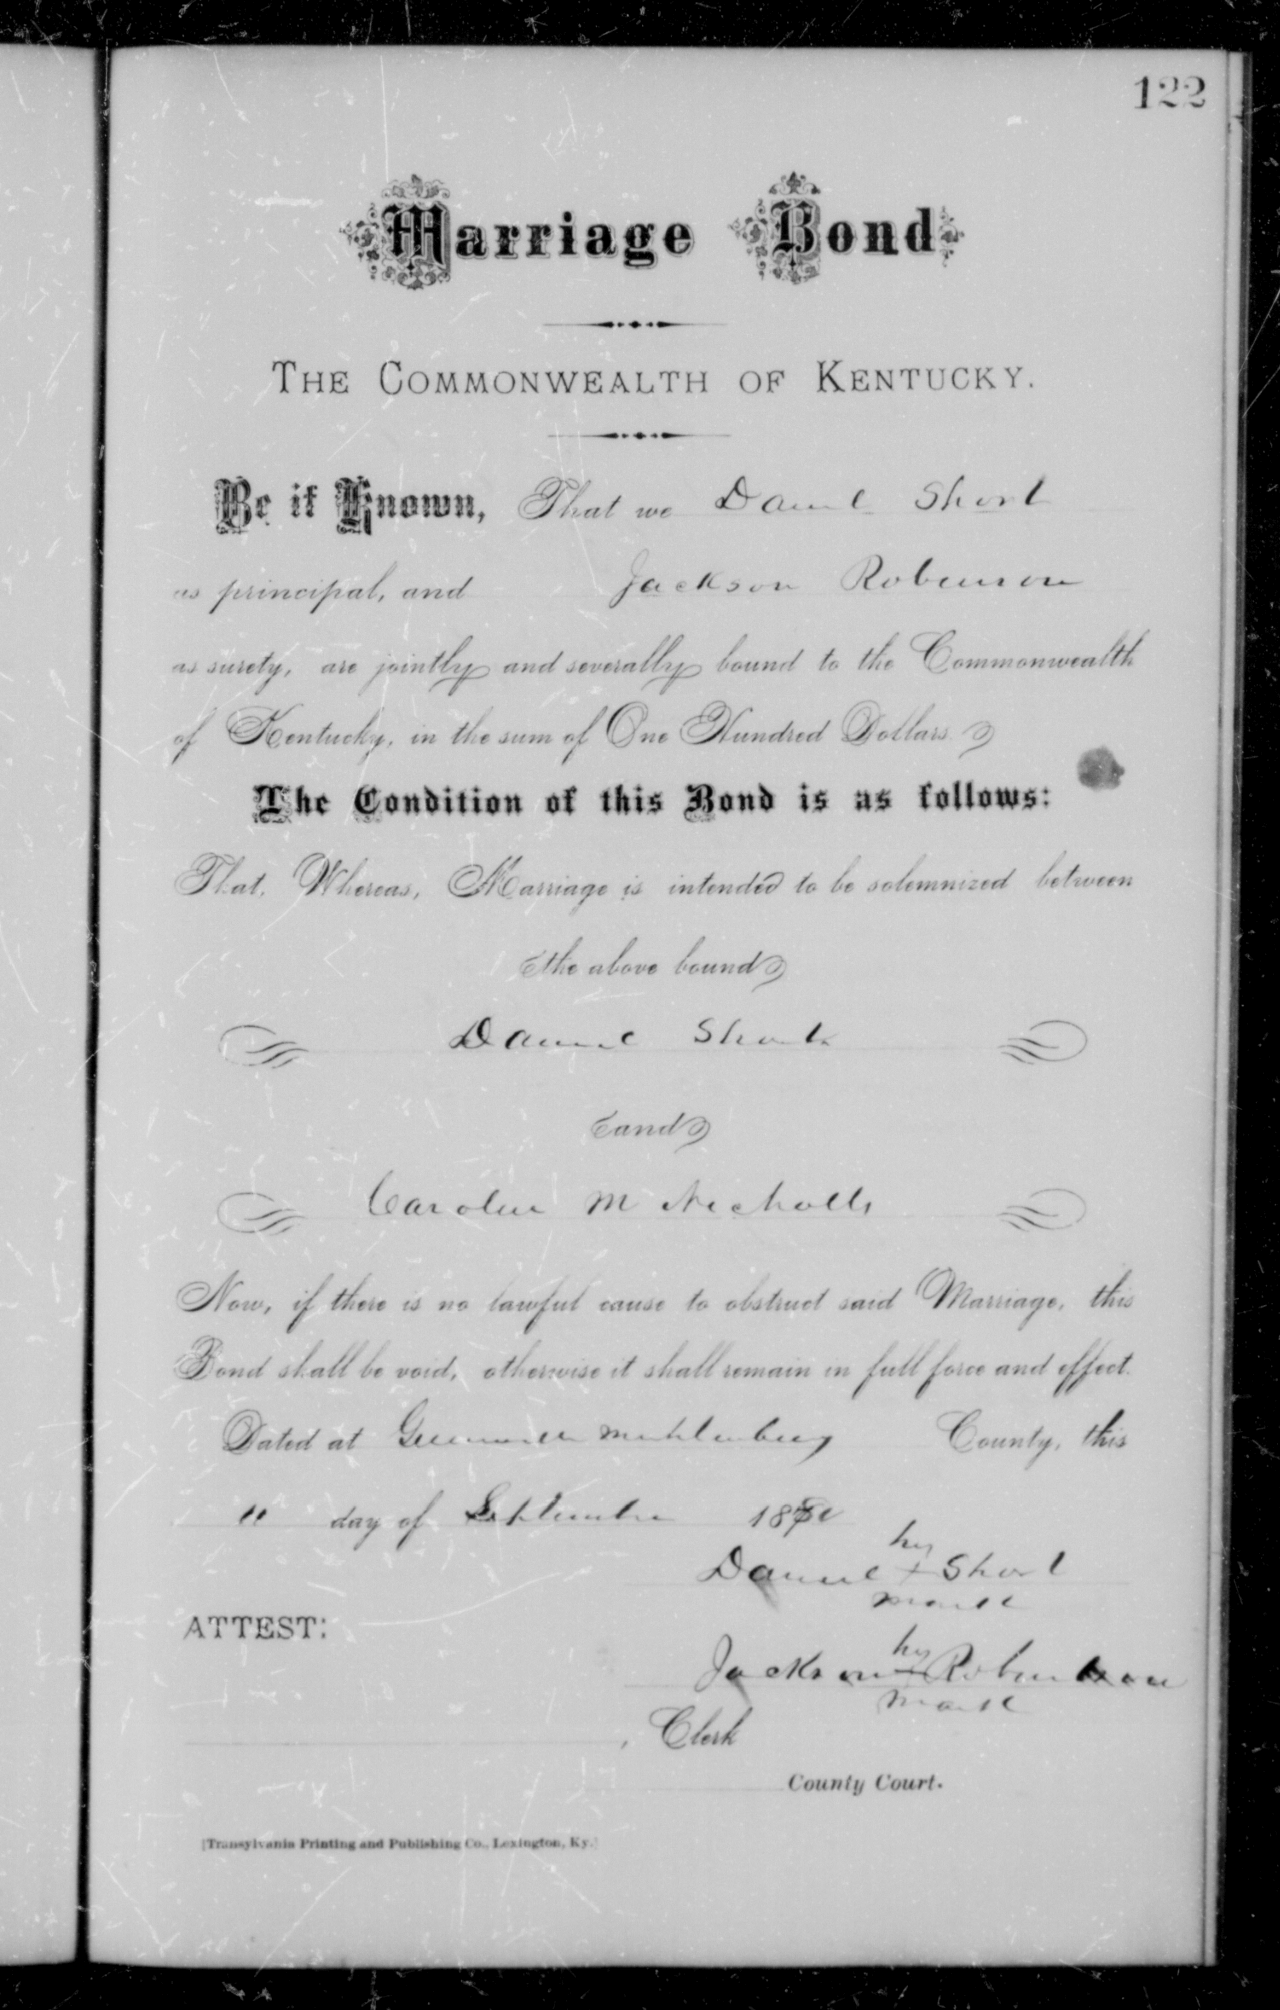 122
Marriage Bond
THE COMMONWEALTH OF KENTUCKY.
Be it Known, That we Daniel Short
as principal, and Jackson Robinson
as surety, are jointly and severally bound to the Commonwealth
of Kentucky, in the sum of One Hundred Dollars
The Condition of this Bond is as follows:
That, Whereas, Marriage is intended to be solemnized between
the above bound
Daniel Short
and
Caroline M Nicholls
Now, if there is no lawful cause to obstruct said Marriage, this
Bond shall be void, otherwise it shall remain in full force and effect.
Dated at Greenville Muhlenberg County, this
11 day of September 18
his
Daniel + Short
mark
ATTEST:
his
Jackson + Robinson
mark
, Clerk
County Court.
[Transylvania Printing and Publishing Co., Lexington, Ky.]